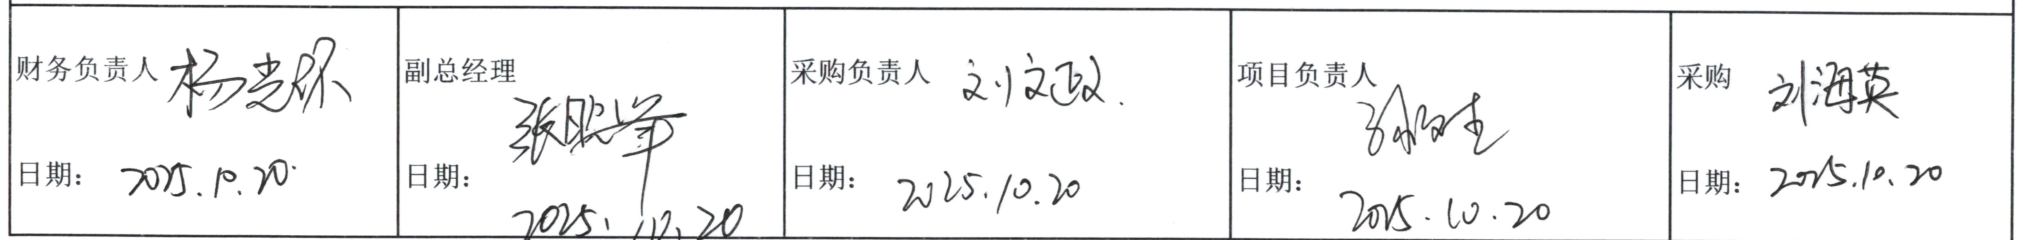 财务负责人 杨光
日期： 2025.10.20.
副总经理
张聪
日期：
2025.10.20
采购负责人 刘文政.
日期： 2025.10.20
项目负责人
日期：
2025.10.20
采购 刘海英
日期： 2025.10.20